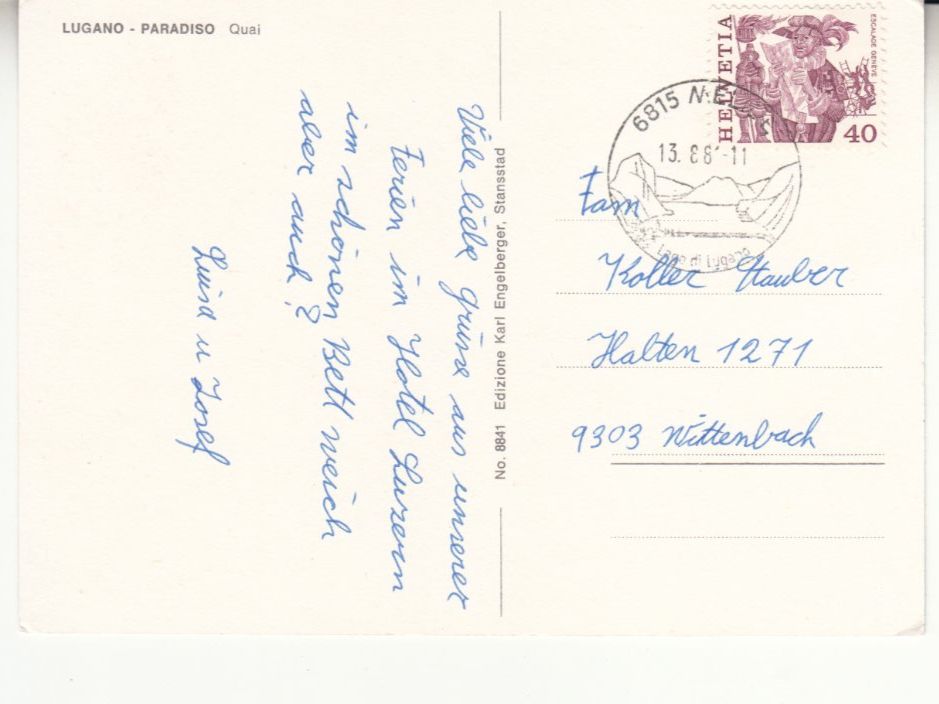 LUGANO - PARADISO Quai
Viele liebe Grüsse aus unserer
Ferien im Hotel Luzern
im schönen Bett weich
aber auch?
Luisa u Josef
No. 8841 Edizione Karl Engelberger, Stansstad
HELVETIA
ESCALADE GENÈVE
40
6815
13. 8 8 -11
Lago di Lugano
Fam
Koller Stauber
Halten 1271
9303 Wittenbach